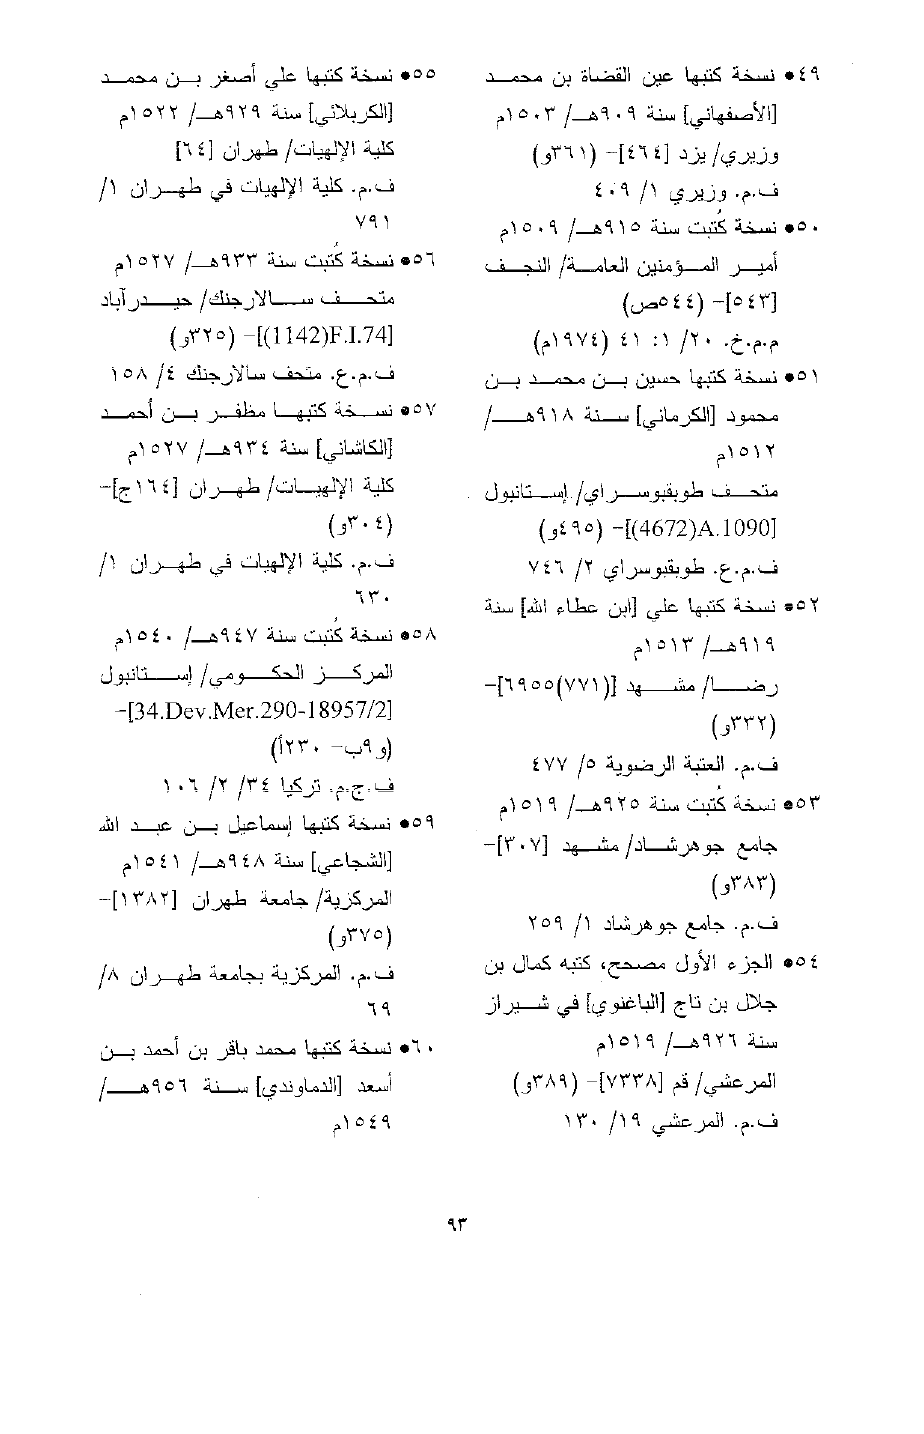 ٤٩● نسخة كتبها عين القضاة بن محمد
[الأصفهاني] سنة ٩٠٩هـ/ ١٥٠٣م
وزيري/ يزد [٤٦٤]- (٣٦١و)
ف.م. وزيري ١/ ٤٠٩
٥٠● نسخة كُتبت سنة ٩١٥هـ/ ١٥٠٩م
أمير المؤمنين العامة/ النجف
[٥٤٣]- (٥٤٤ص)
م.م.خ. ٢٠/ ١: ٤١ (١٩٧٤م)
٥١● نسخة كتبها حسين بن محمد بن
محمود [الكرماني] سنة ٩١٨هـ/
١٥١٢م
متحف طوبقبوسراي/ إستانبول
[4672)A.1090)]- (٤٩٥و)
ف.م.ع. طوبقبوسراي ٢/ ٧٤٦
٥٢● نسخة كتبها علي [ابن عطاء الله] سنة
٩١٩هـ/ ١٥١٣م
رضا/ مشهد [(٧٧١)٦٩٥٥]-
(٣٣٢و)
ف.م. العتبة الرضوية ٥/ ٤٧٧
٥٣● نسخة كُتبت سنة ٩٢٥هـ/ ١٥١٩م
جامع جوهرشاد/ مشهد [٣٠٧]-
(٣٨٣و)
ف.م. جامع جوهرشاد ١/ ٢٥٩
٥٤● الجزء الأول مصحح، كتبه كمال بن
جلال بن تاج [الباغنوي] في شيراز
سنة ٩٢٦هـ/ ١٥١٩م
المرعشي/ قم [٧٣٣٨]- (٣٨٩و)
ف.م. المرعشي ١٩/ ١٣٠
٥٥● نسخة كتبها علي أصغر بن محمد
[الكربلائي] سنة ٩٢٩هـ/ ١٥٢٢م
كلية الإلهيات/ طهران [٦٤]
ف.م. كلية الإلهيات في طهران ١/
٧٩١
٥٦● نسخة كُتبت سنة ٩٣٣هـ/ ١٥٢٧م
متحف سالارجنك/ حيدرآباد
[1142)F.I.74)]- (٣٢٥و)
ف.م.ع. متحف سالارجنك ٤/ ١٥٨
٥٧● نسخة كتبها مظفر بن أحمد
[الكاشاني] سنة ٩٣٤هـ/ ١٥٢٧م
كلية الإلهيات/ طهران [١٦٤ج]-
(٣٠٤و)
ف.م. كلية الإلهيات في طهران ١/
٦٣٠
٥٨● نسخة كُتبت سنة ٩٤٧هـ/ ١٥٤٠م
المركز الحكومي/ إستانبول
[34.Dev.Mer.290-18957/2]-
(و٩ب- ٢٣٠أ)
ف.ج.م. تركيا ٣٤/ ٢/ ١٠٦
٥٩● نسخة كتبها إسماعيل بن عبد الله
[الشجاعي] سنة ٩٤٨هـ/ ١٥٤١م
المركزية/ جامعة طهران [١٣٨٢]-
(٣٧٥و)
ف.م. المركزية بجامعة طهران ٨/
٦٩
٦٠● نسخة كتبها محمد باقر بن أحمد بن
أسعد [الدماوندي] سنة ٩٥٦هـ/
١٥٤٩م
٩٣